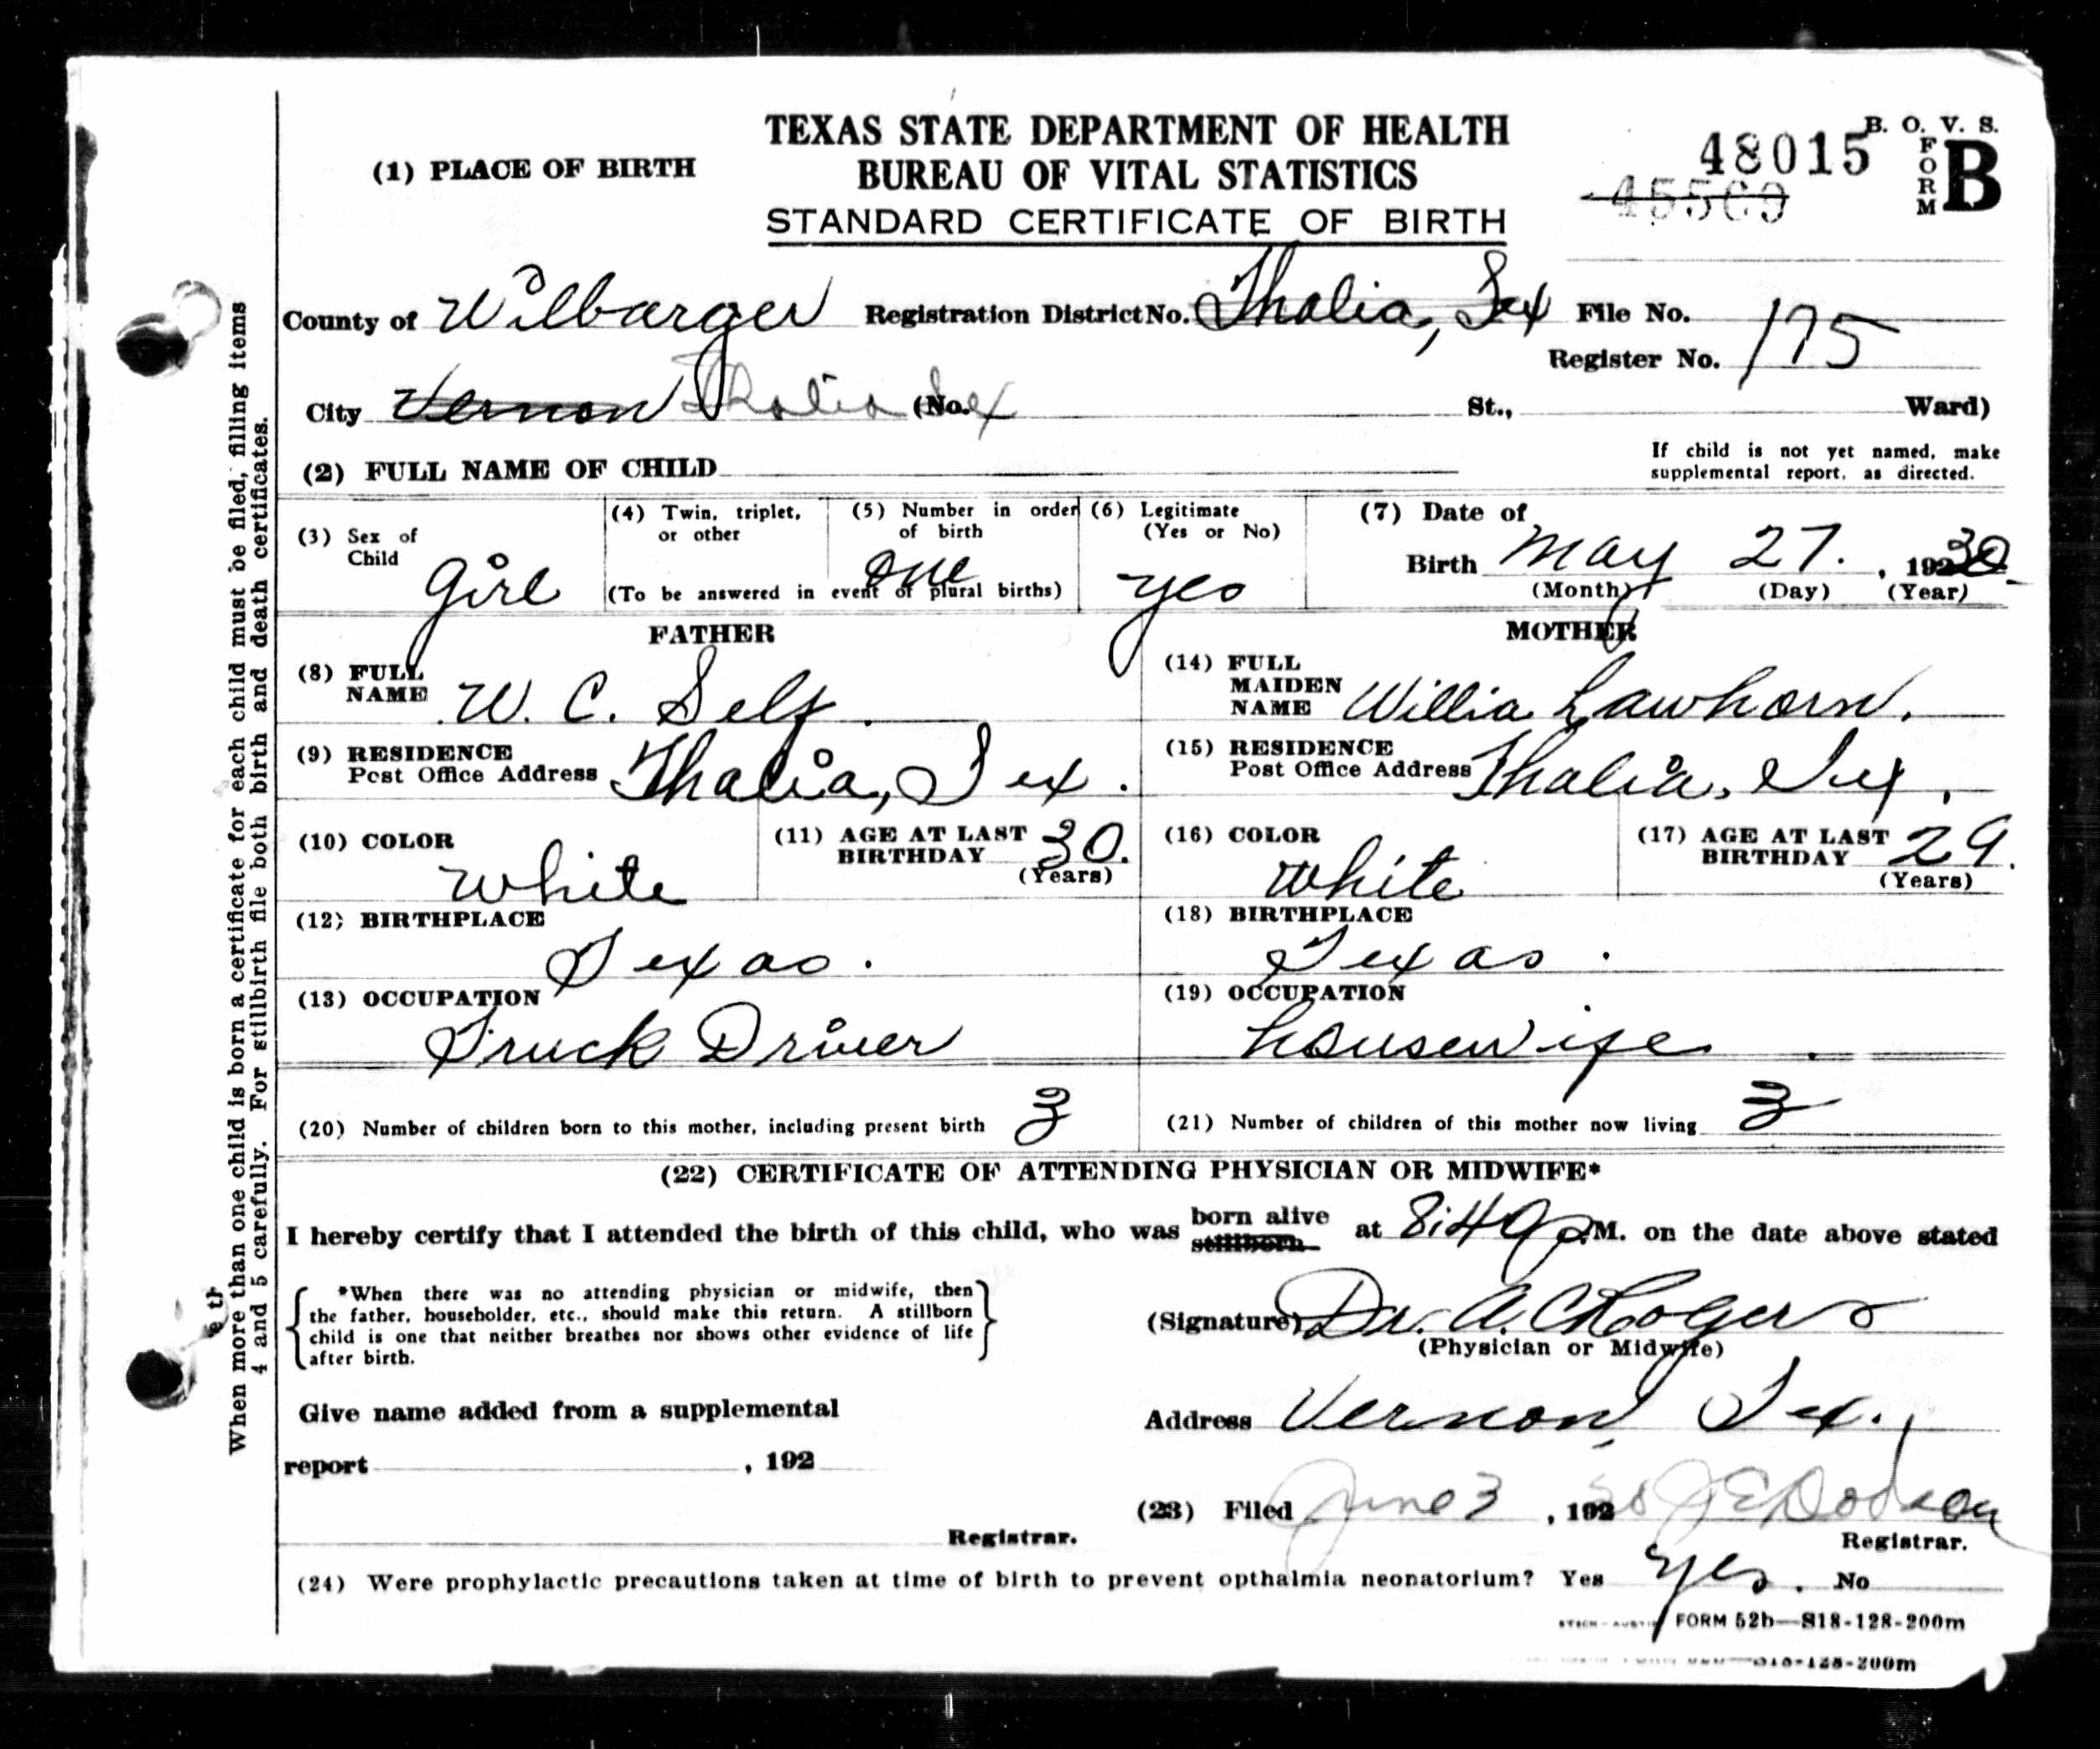 TEXAS STATE DEPARTMENT OF HEALTH
BUREAU OF VITAL STATISTICS
STANDARD CERTIFICATE OF BIRTH
(1) PLACE OF BIRTH
B. O. V. S.
FORM B
48015
County of Wilbarger Registration District No. Thalia, Tex File No.
Register No. 175
City Vernon Thalia Tex (No. St., Ward)
(2) FULL NAME OF CHILD
If child is not yet named, make
supplemental report, as directed.
(3) Sex of Child Girl
(4) Twin, triplet, or other
(5) Number in order of birth one
(To be answered in event of plural births)
(6) Legitimate (Yes or No) yes
(7) Date of Birth May 27. , 19230
(Month) (Day) (Year)
FATHER
(8) FULL NAME W. C. Self.
(9) RESIDENCE Post Office Address Thalia, Tex.
(10) COLOR White
(11) AGE AT LAST BIRTHDAY 30. (Years)
(12) BIRTHPLACE Texas.
(13) OCCUPATION Truck Driver
MOTHER
(14) FULL MAIDEN NAME Willia Lawhorn.
(15) RESIDENCE Post Office Address Thalia, Tex.
(16) COLOR White
(17) AGE AT LAST BIRTHDAY 29. (Years)
(18) BIRTHPLACE Texas.
(19) OCCUPATION housewife.
(20) Number of children born to this mother, including present birth 3
(21) Number of children of this mother now living 3
(22) CERTIFICATE OF ATTENDING PHYSICIAN OR MIDWIFE*
I hereby certify that I attended the birth of this child, who was born alive stillborn at 8:40 P.M. on the date above stated
*When there was no attending physician or midwife, then
the father, householder, etc., should make this return. A stillborn
child is one that neither breathes nor shows other evidence of life
after birth.
(Signature) Dr. A. C. Rogers
(Physician or Midwife)
Give name added from a supplemental
report , 192
Address Vernon, Tex.
(23) Filed June 3 , 192 30 J E Dodson
Registrar.
Registrar.
(24) Were prophylactic precautions taken at time of birth to prevent opthalmia neonatorium? Yes Yes. No
FORM 52b—S18-128-200m
When more than one child is born a certificate for each child must be filed, filling items
4 and 5 carefully. For stillbirth file both birth and death certificates.